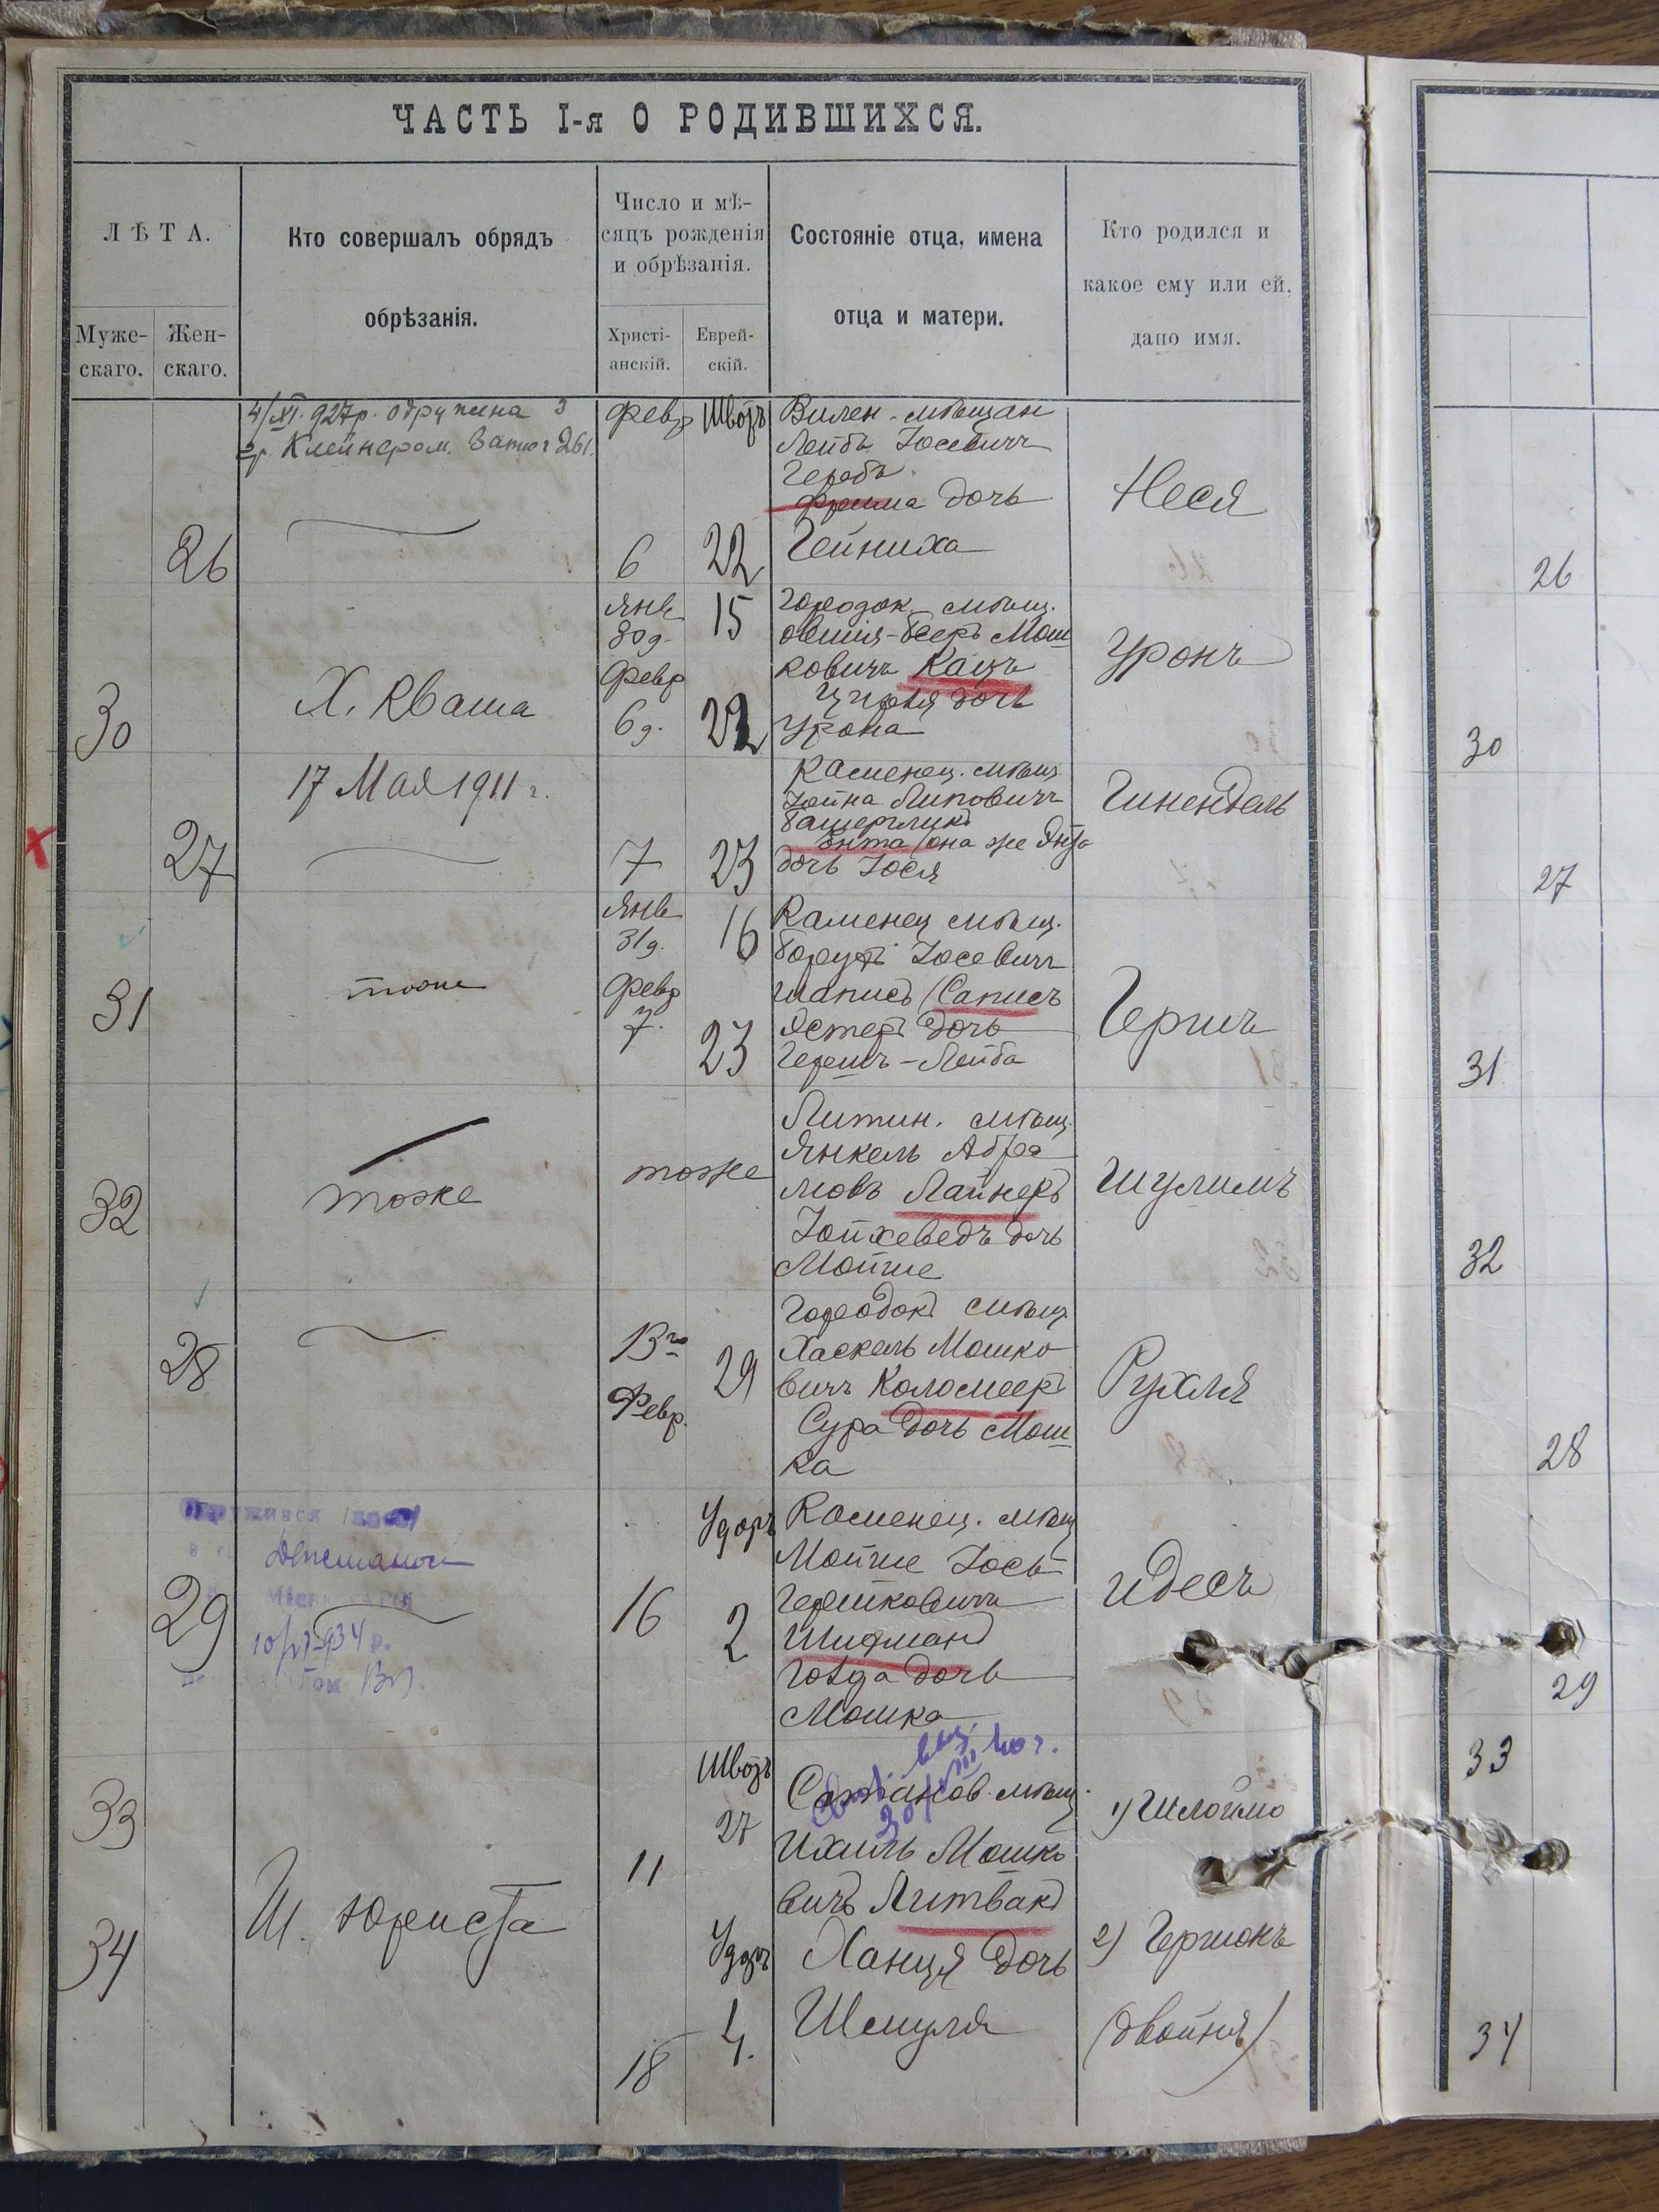 ЧАСТЬ I-я О РОДИВШИХСЯ.
ЛѢТА.
Муже-
скаго.
Жен-
скаго.
Кто совершалъ обрядъ
обрѣзанія.
Число и мѣ-
сяцъ рожденія
и обрѣзанія.
Христі-
анскій.
Еврей-
скій.
Состояніе отца, имена
отца и матери.
Кто родился и
какое ему или ей,
дано имя.
26
4/XI 927р. одружена з
гр. Клейнером.
Февр
6
Швотъ
22
Вилен. мѣщан
Лейбъ Іосевичъ
Фрима дочь
Гейниха
Неся
26
30
Х. Кваша
Янв
30 д.
Февр
6 д.
15
22
Городок. мѣщ.
Овшія-Беръ Мош
ковичъ Кацъ
Цирля дочь
Урона
Уронъ
30
27
17 Мая 1911 г.
7
23
Каменец. мѣщ.
Іойна Липовичъ
Энта (она же Янта
дочь Іося
Гинендель
27
31
тоже
Янв
31 д.
Февр
7.
16
23
Каменец мѣщ.
Борухъ Іосевичъ
Шаписъ (Саписъ
Эстеръ дочь
Гершъ-Лейба
Гершъ
31
32
тоже
тоже
Литин. мѣщ.
Янкель Абра
мовъ Лайнеръ
Іойхеведъ дочь
Мойше
Шулимъ
32
28
13го
Февр.
29
Городокъ мѣщ
Хаскель Мошко
вичъ Коломееръ
Сура дочь Мош
ка
Рухля
28
29
16
Удоръ
2
Каменец. мѣщ
Мойше Іось
Гершковичъ
Шифманъ
Голда дочь
Мошка
Идесъ
29
33
34
Ш. Юриста
11
18
Швотъ
27
Удоръ
4.
Сатанов. мѣщ.
Ихиль Мошко
вичъ Литвакъ
Ханця дочь
Шмуля
1) Шлоймо
2) Гершонъ
(двойня)
33
34